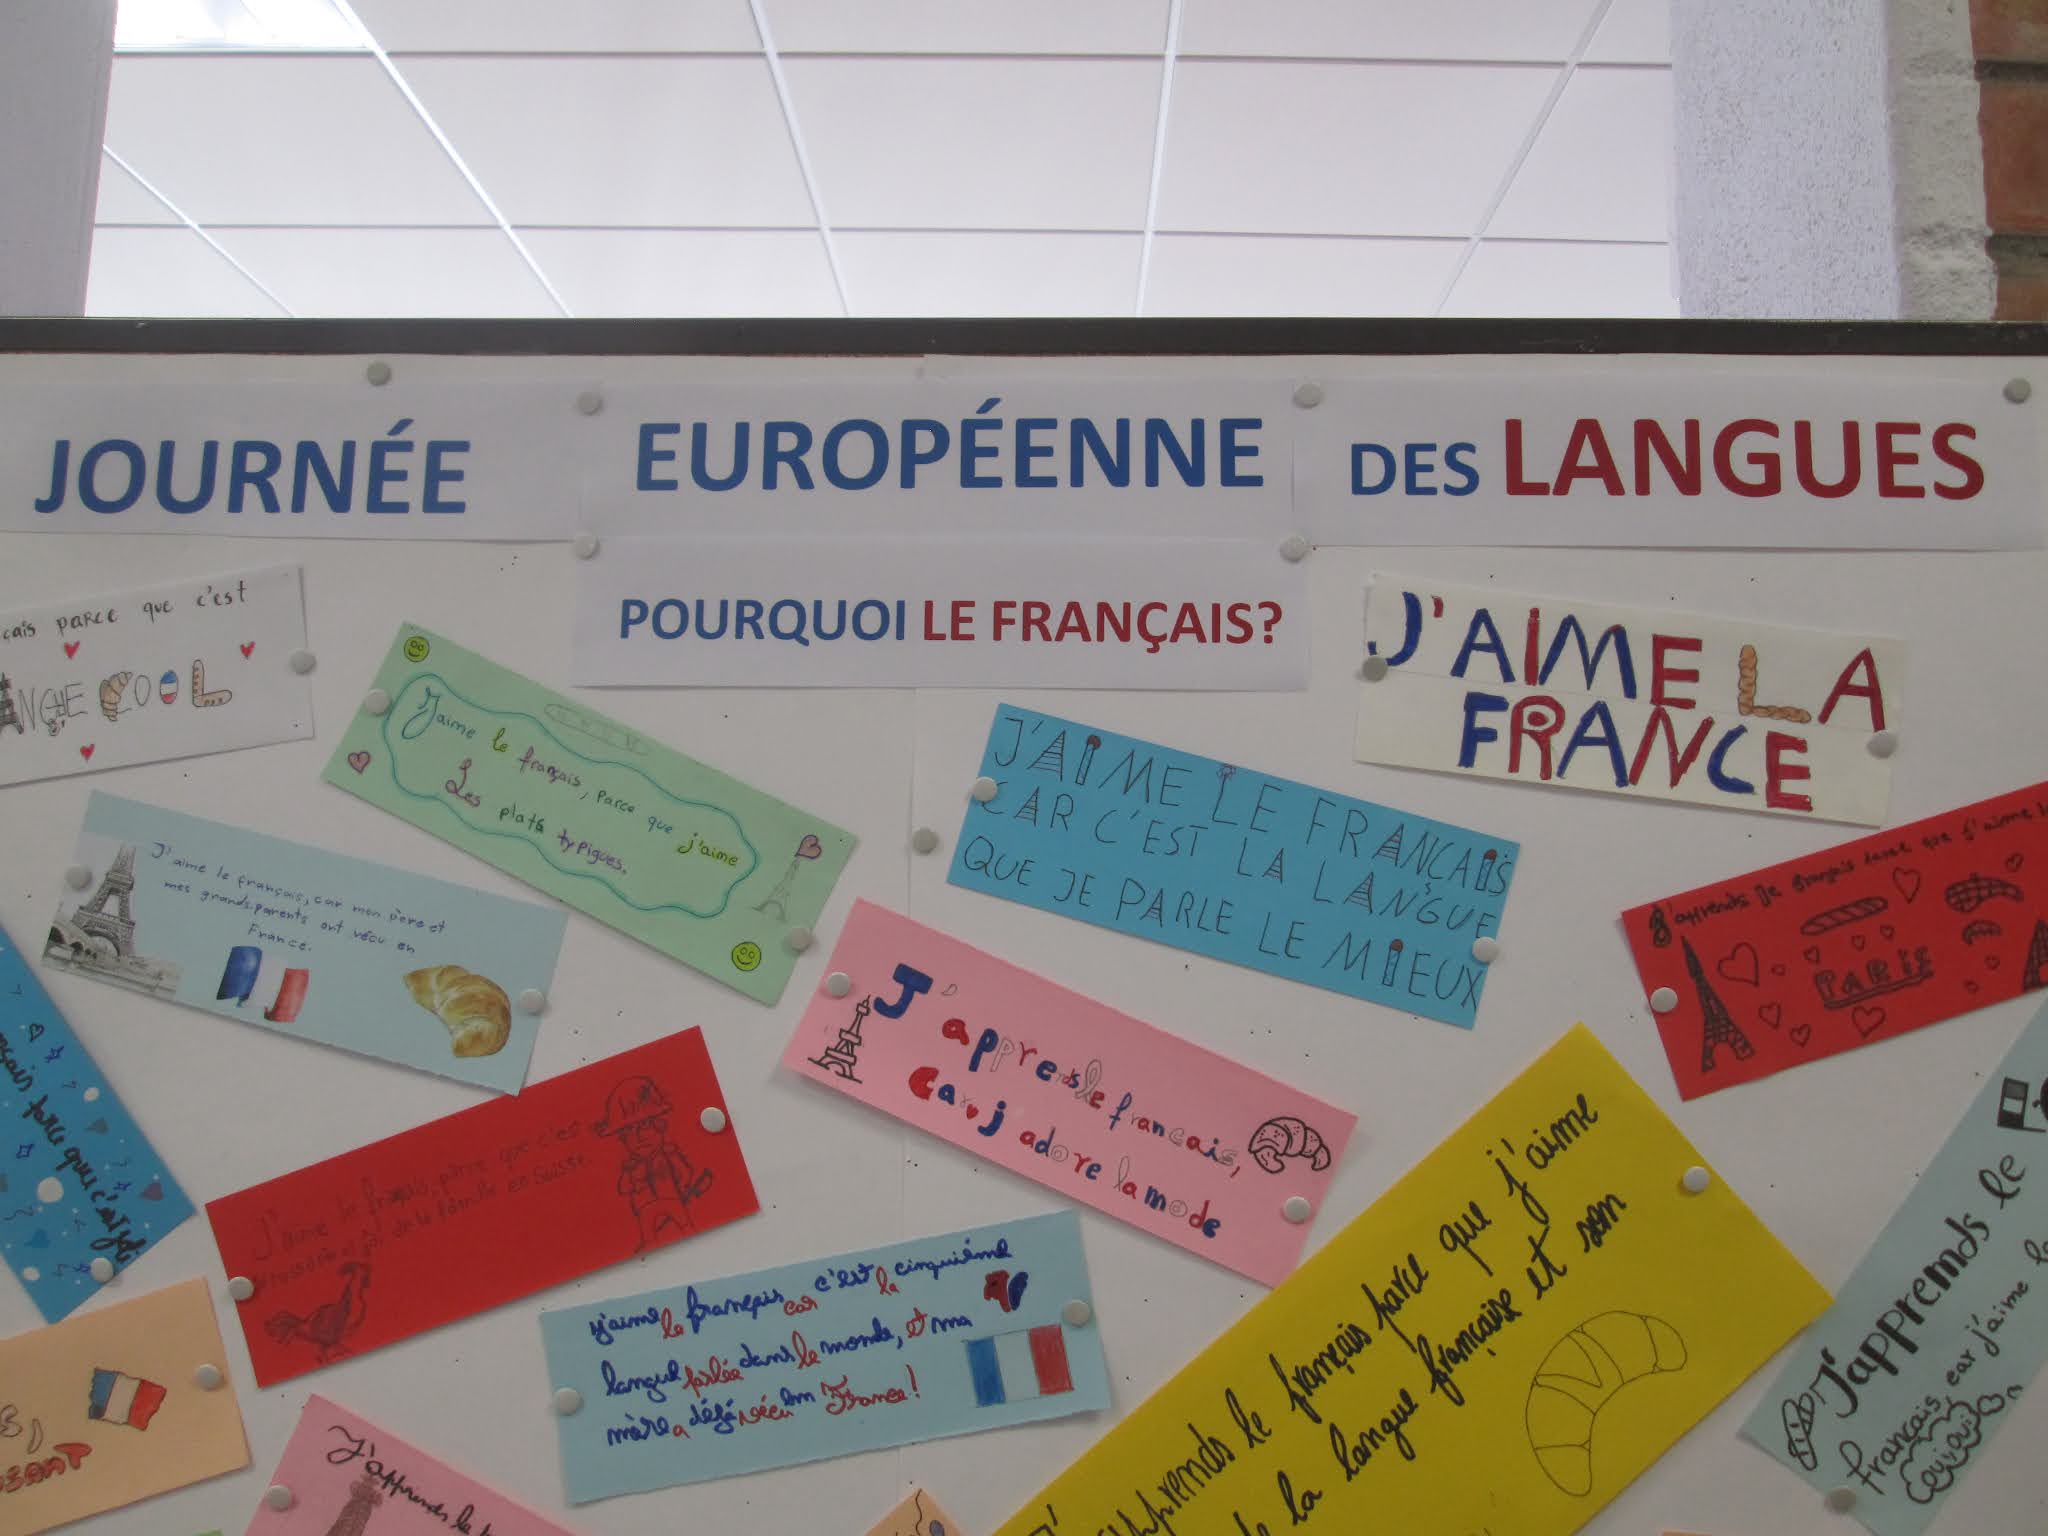 JOURNÉE EUROPÉENNE DES LANGUES
POURQUOI LE FRANÇAIS?
parce que c'est
COOL
J'AIME LA
FRANCE
J'aime le français, parce que j'aime
Les plats typiques.
J'AIME LE FRANCAIS
CAR C'EST LA LANGUE
QUE JE PARLE LE MIEUX
J'aime le français, car mon père et
mes grands-parents ont vécu en
France.
J'apprends le français parce que j'aime
PARIS
J'apprends le francais,
Car j adore la mode
parce que c'est
J'aime le français, parce que c'est
de la famille en Suisse.
j'aime le français car c'est la cinquième
langue parlée dans le monde, et ma
mère a déjà vécu en France!
le français parce que j'aime
la langue française et son
J'apprends le
français car j'aime
J'apprends le